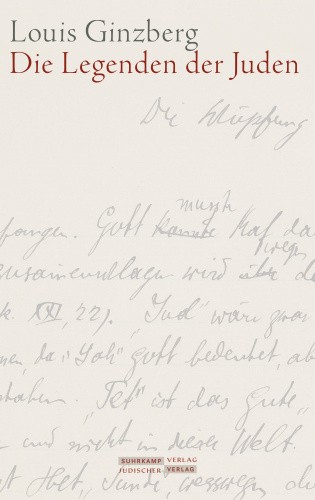 Louis Ginzberg
Die Legenden der Juden
Die Schöpfung
musste
fangen. Gott konnte Kaf da
wegen
zusammenschlagen wird über de
k. XXI, 22). „Jud" wäre zwar
men, da „Joh" Gott bedeutet, ab
staben. „Tet" ist das Gute,
und nicht in dieser Welt.
Het, „Sünde,
SUHRKAMP VERLAG
JÜDISCHER VERLAG